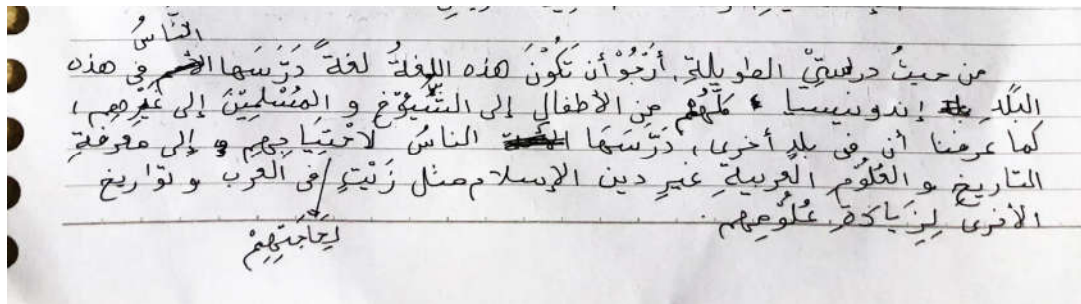 الناسُ
من حيثُ درستِيْ الطويلةِ، أَرْجُوْ أن تَكُوْنَ هذه اللغةُ لغةً دَرَّسَهَا في هذه
البَلَدِ إندونيسيا كلُّهُم من الأطفالِ إلى الشُّيُوْخِ و المُسْلِمِيْنَ إلى غَيْرِهِم،
كما عرفنا أن في بلدٍ أخرى، دَرَّسَهَا الناسُ لاحْتِيَاجِهِم و إلى معرفةِ
التاريخِ و العُلُوْمِ العربيةِ غيرِ دين الإسلام مثل زَيْتٍ في العرب و تَوَاريخ
الأخرى لِزِيَادَةِ عُلُوْمِهِم.
لِحَاجَتِهِمْ